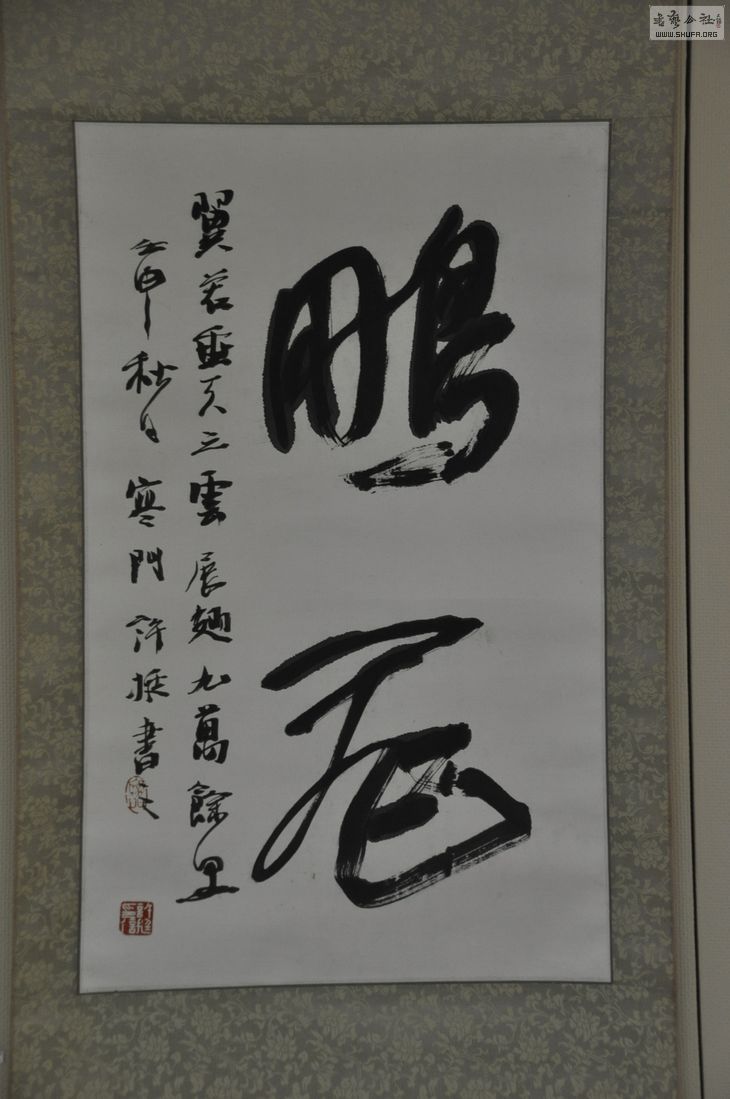 鵬
翼若垂天之雲展翅九萬餘里
壬申秋日寒門許挺書
书艺公社
WWW.SHUFA.ORG